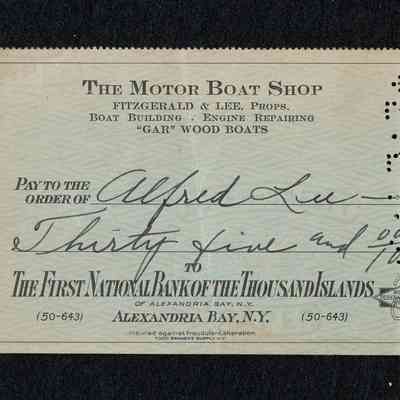 THE MOTOR BOAT SHOP
FITZGERALD & LEE, PROPS.
BOAT BUILDING · ENGINE REPAIRING
"GAR" WOOD BOATS
PAY TO THE
ORDER OF Alfred Lee —
Thirty five and 00/10
TO
THE FIRST NATIONAL BANK OF THE THOUSAND ISLANDS
OF ALEXANDRIA BAY, N.Y.
(50-643) ALEXANDRIA BAY, N.Y. (50-643)
Insured against fraudulent alteration